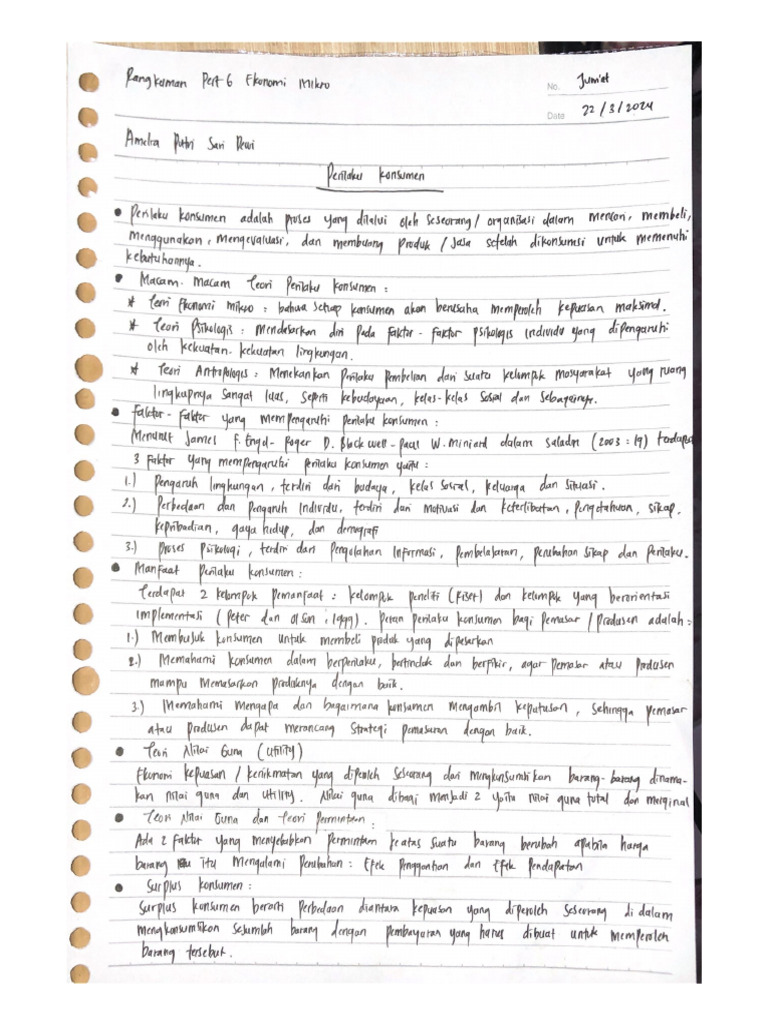 Rangkuman Pert 6 Ekonomi Mikro
No. Jum'at
Date 22/3/2024
Amelra Putri Sari Dewi
Perilaku Konsumen
• Perilaku konsumen adalah proses yang dilalui oleh seseorang / organisasi dalam mencari, membeli,
menggunakan, mengevaluasi, dan membuang produk / jasa setelah dikonsumsi untuk memenuhi
kebutuhannya.
• Macam-Macam Teori Perilaku Konsumen :
* Teori Ekonomi mikro : bahwa setiap konsumen akan berusaha memperoleh kepuasan maksimal.
* Teori Psikologis : Mendasarkan diri pada faktor-faktor psikologis individu yang dipengaruhi
oleh kekuatan-kekuatan lingkungan.
* Teori Antropologis : Menekankan perilaku pembelian dari suatu kelompok masyarakat yang ruang
lingkupnya sangat luas, seperti kebudayaan, kelas-kelas sosial dan sebagainya.
• Faktor-Faktor yang mempengaruhi perilaku konsumen :
Menurut James F. Engel - Roger D. Blackwell - Paul W. Miniard dalam saladin (2003 : 19) terdapat
3 faktor yang mempengaruhi perilaku konsumen yaitu :
1.) Pengaruh lingkungan, terdiri dari budaya, kelas sosial, keluarga dan situasi.
2.) Perbedaan dan pengaruh individu, terdiri dari motivasi dan keterlibatan, pengetahuan, sikap.
kepribadian, gaya hidup, dan demografi
3.) Proses psikologi, terdiri dari pengolahan informasi, pembelajaran, perubahan sikap dan perilaku.
• Manfaat perilaku konsumen :
Terdapat 2 kelompok pemanfaat : kelompok peneliti (Riset) dan kelompok yang berorientasi
implementasi (Peter dan Olson, 1999). Peran perilaku konsumen bagi pemasar / produsen adalah :
1.) Membujuk konsumen untuk membeli produk yang dipasarkan
2.) Memahami konsumen dalam berperilaku, bertindak dan berfikir, agar pemasar atau produsen
mampu memasarkan produknya dengan baik.
3.) Memahami mengapa dan bagaimana konsumen mengambil keputusan, sehingga pemasar
atau produsen dapat merancang strategi pemasaran dengan baik.
• Teori Nilai Guna (Utility)
Ekonomi kepuasan / kenikmatan yang diperoleh seseorang dari mengkonsumsikan barang-barang dinama-
kan nilai guna dan utility. Nilai guna dibagi menjadi 2 yaitu nilai guna total dan marginal
• Teori Nilai Guna dan Teori Permintaan :
Ada 2 faktor yang menyebabkan permintaan keatas suatu barang berubah apabila harga
barang itu mengalami perubahan : Efek Penggantian dan Efek Pendapatan
• Surplus Konsumen :
Surplus konsumen berarti perbedaan diantara kepuasan yang diperoleh seseorang di dalam
mengkonsumsikan sejumlah barang dengan pembayaran yang harus dibuat untuk memperoleh
barang tersebut.